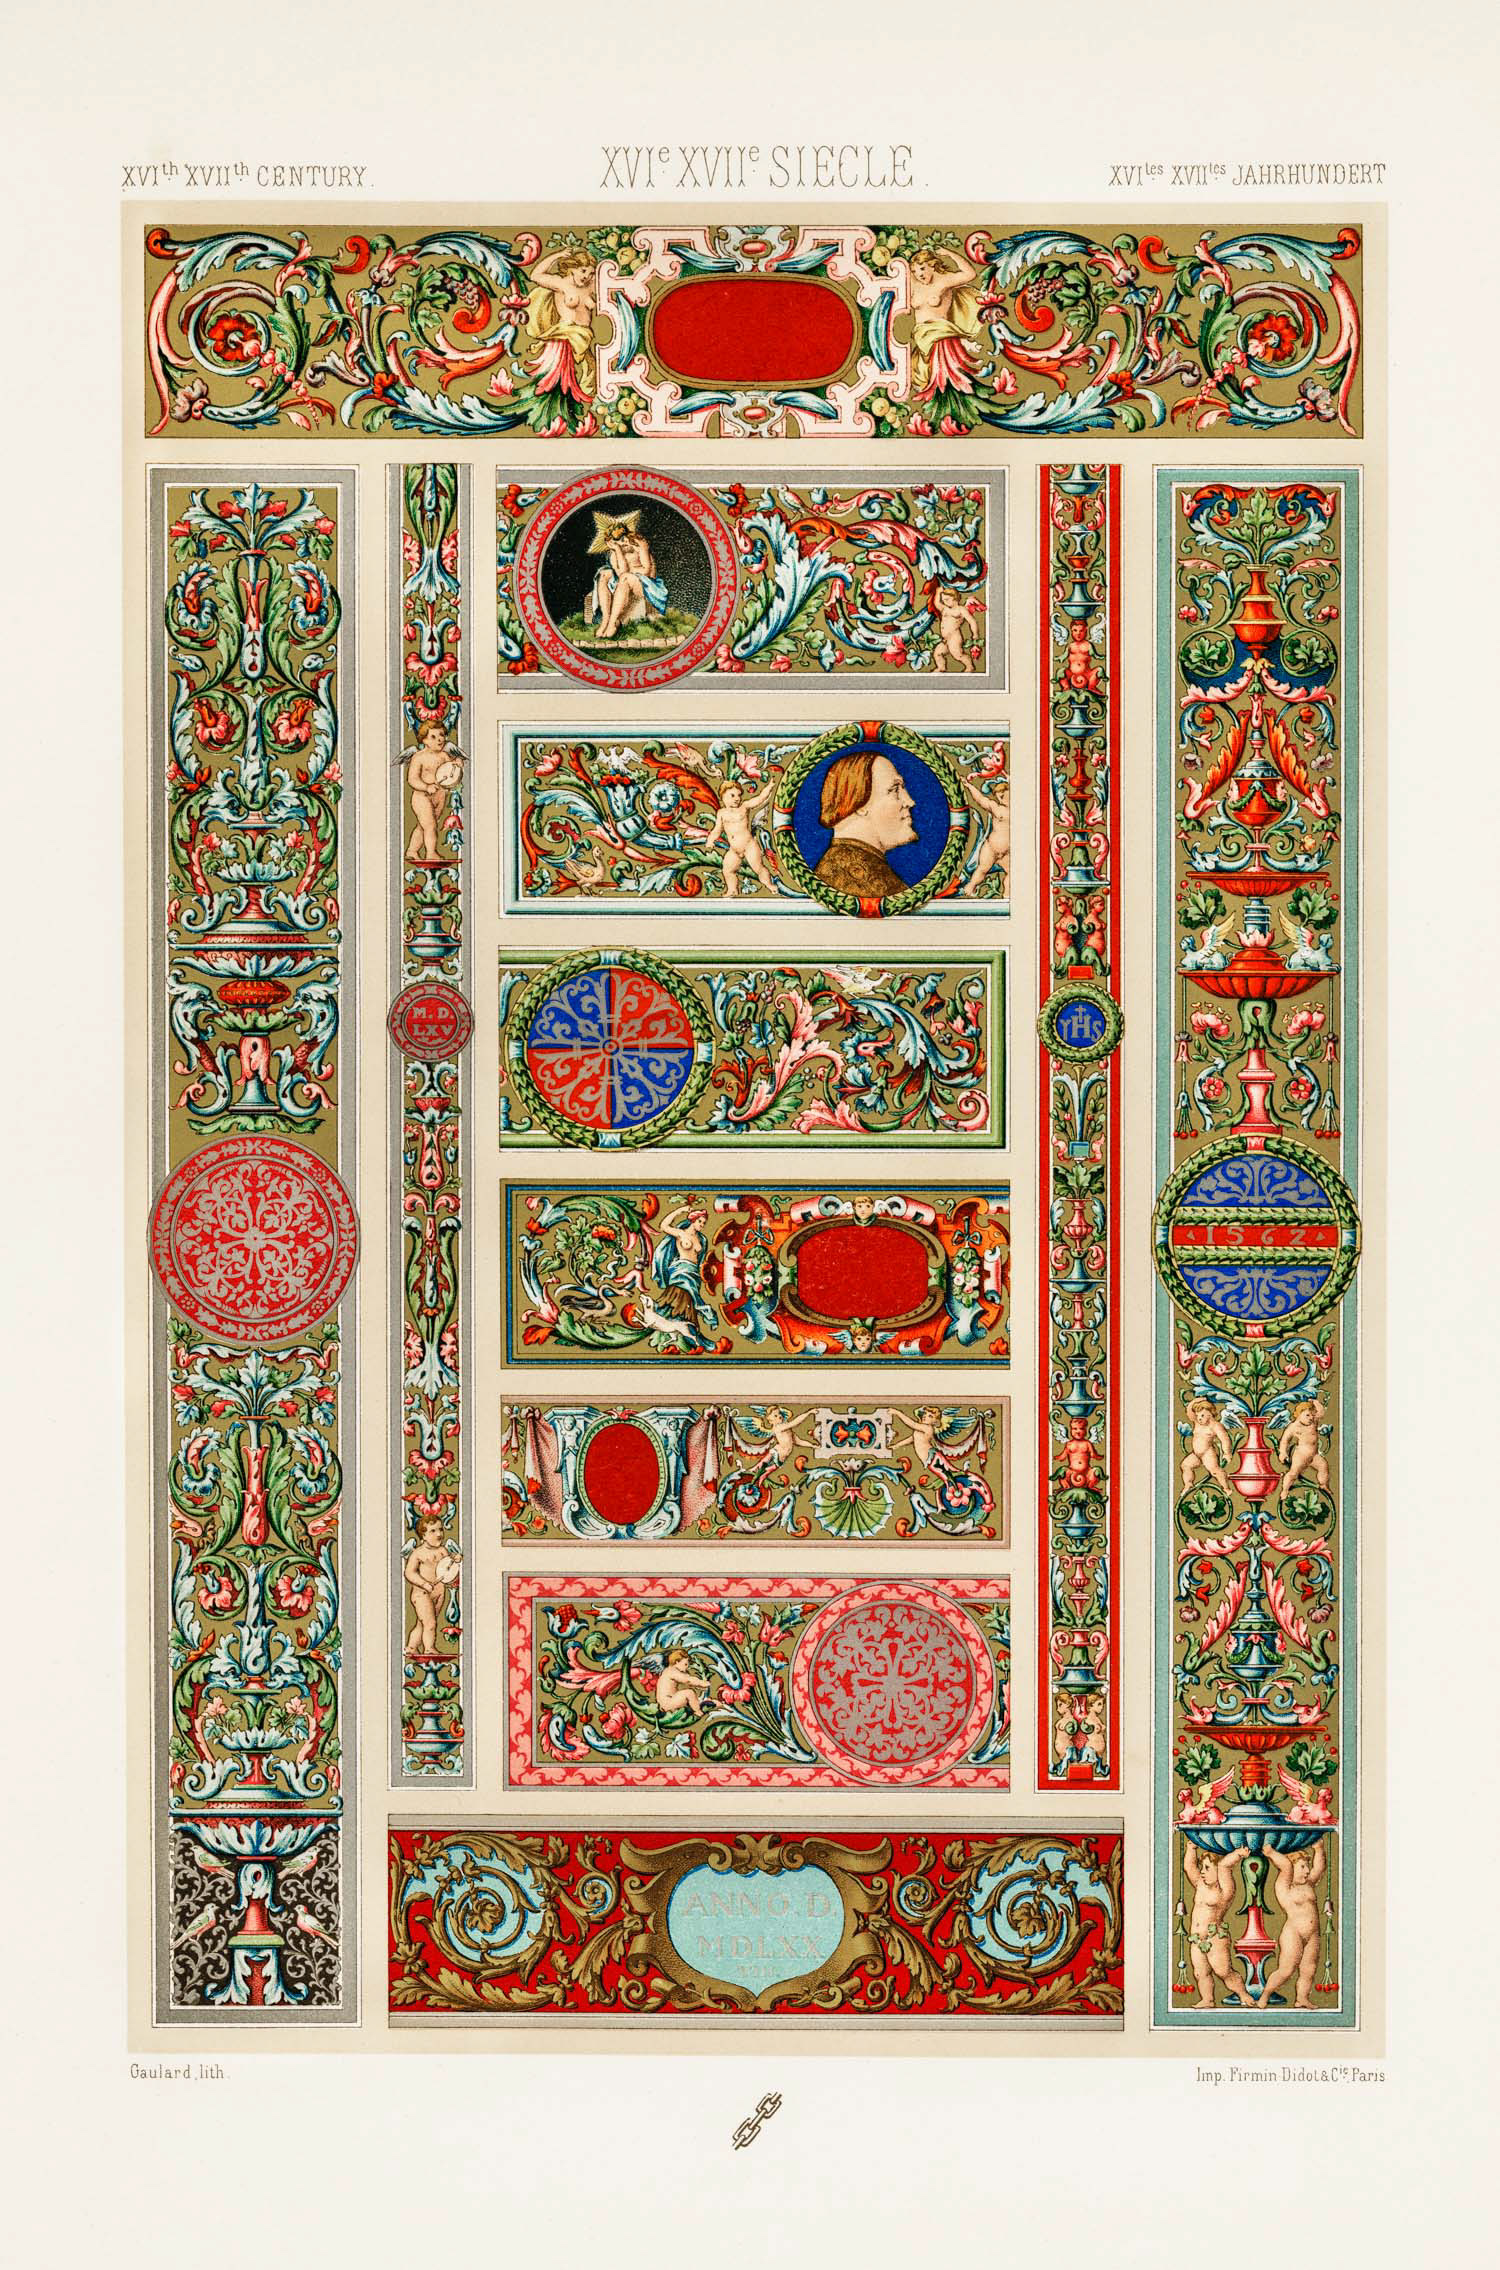 XVIth XVIIth CENTURY.
XVIe XVIIe SIECLE.
XVItes XVIItes JAHRHUNDERT
M.D.
LXV
YHS
1562
ANNO. D.
MDLXX
VIII.
Gaulard, lith.
Imp. Firmin-Didot & Cie. Paris